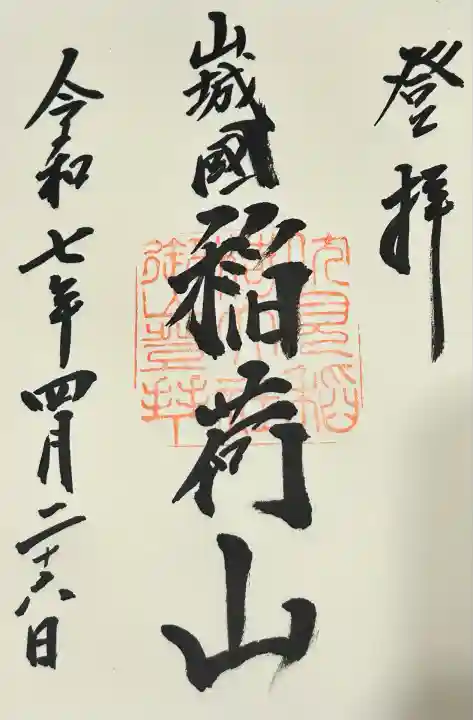 登拝
山城國稲荷山
令和七年四月二十六日